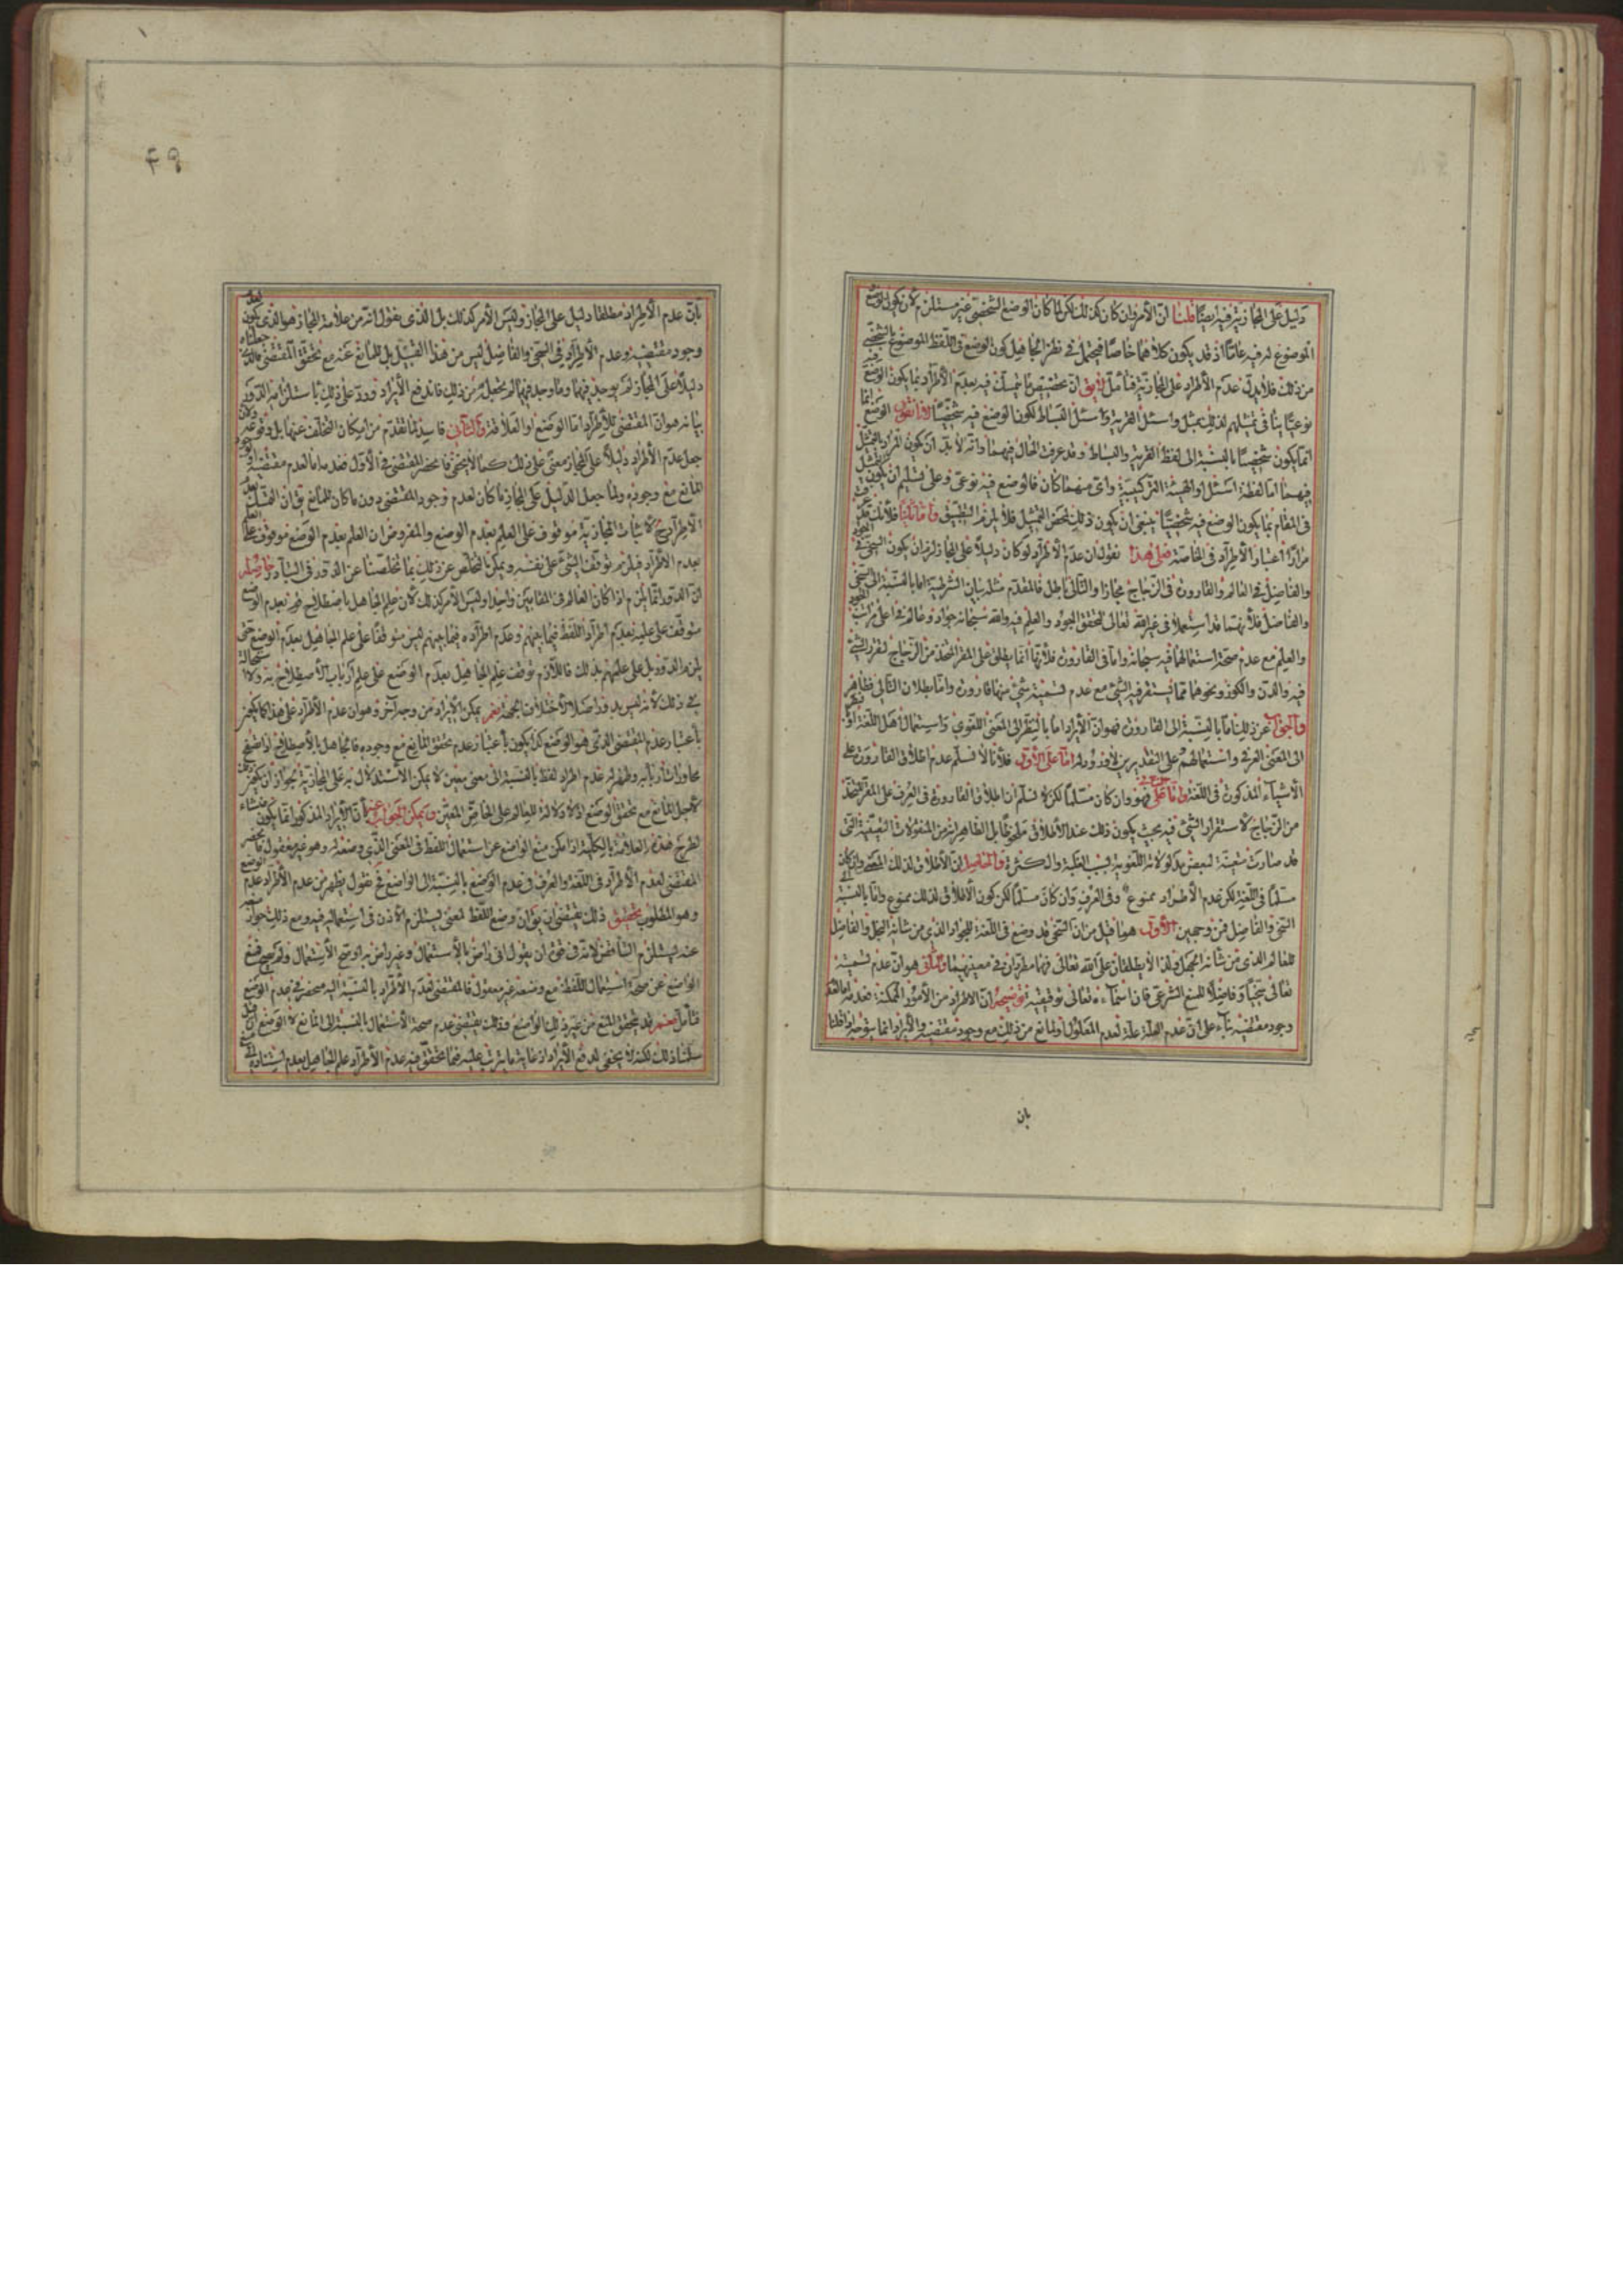 دليل على المجازية فيه ايضا قلنا ان الأمر وان كان كذلك لكن لما كان الوضع الشخصي غير مستلزم لأن يكون الوضع
الموضوع له فيه عامّا اذ قد يكون كلاهما خاصّا فيحتمل في نظر الجاهل كون الوضع في اللفظ الموضوع بالشخصي
من ذلك فلا يدل عدم الأطراد على المجازية فتأمل لا يق ان تخصيص ما نحن فيه بعدم الأطراد بما يكون الوضع فيه
نوعيّا ينافي تمثيلهم لذلك بمثل واسئل القرية واسئل البساط لكون الوضع فيه شخصيّا لأنا نقول الوضع انما
انما يكون شخصيّا بالنسبة الى لفظ القرية والبساط وقد عرفت الحال فيهما وانه لا بد ان يكون المراد بالتمثيل
فيهما اما لفظة اسئل او الهيئة التركيبية واي منهما كان فالوضع فيه نوعي وعلى تسليم ان يكون
في المقام بما يكون الوضع فيه شخصيّا ينبغي ان يكون ذلك لمحض التمثيل فلا يلزم التطبيق واما ثانيا فلأنك
مرارا اعتبار الأطراد في الخاصة فعلى هذا نقول ان عدم الأطراد لو كان دليلا على المجاز لزم ان يكون السخي
والفاضل في العالم والقارورة في الزجاج مجازا والتالي باطل فالمقدم مثله بيان الشرطية اما بالنسبة الى السخي
والفاضل فلأنهما قد استعملا في غير الله تعالى لتحقق الجود والعلم فيه والله سبحانه جواد وعالم في اعلى مراتب الجود
والعلم مع عدم صحة استعمالهما فيه سبحانه واما في القارورة فلأنها انما يطلق على المقر المتخذ من الزجاج لتقرر الشيء
فيه والدن والكوز ونحوهما مما يستقر فيه الشيء مع عدم تسمية شيء منها قارورة واما بطلان التالي فظاهر
والجواب عن ذلك اما بالنسبة الى القارورة فهو ان الأيراد اما بالنظر الى المعنى اللغوي واستعمال اهل اللغة او
الى المعنى العرفي واستعمالهم وعلى التقديرين لا ورود له اما على الأول فلأنا لا نسلم عدم اطلاق القارورة على
الأشياء المذكورة في اللغة واما على فهو وان كان مسلما لكن لا نسلم ان اطلاق القارورة في العرف على المقر المتخذ
من الزجاج لاستقرار الشيء فيه بحيث يكون ذلك عند الأطلاق ملحوظا بل الظاهر انه من المنقولات التعينية التي
قد صارت متعينة لبعض مدلولاته اللغوية بسبب الغلبة والكثرة والحاصل ان الأطلاق لذلك المعنى وان كان
مسلما في اللغة لكن عدم الأطراد ممنوع وفي العرف وان كان مسلما لكن كون الأطلاق لذلك ممنوع واما بالنسبة
السخي والفاضل فمن وجهين الأول هو ما قيل من ان السخي قد وضع في اللغة للجواد الذي من شانه البخل والفاضل
للعالم الذي من شانه الجهل ولذا لا يطلقان على الله تعالى فهما مطردان في معنييهما والثاني هو ان عدم تسميته
تعالى سخيا وفاضلا للمنع الشرعي فان اسماءه تعالى توقيفية توضيحه ان الأطراد من الأمور الممكنة فعدمه اما لعدم
وجود مقتضيه بناء على ان عدم العلة علة لعدم المعلول او لمانع من ذلك مع وجود مقتضيه والأيراد انما يتوجه اذا قلنا
بان
٤٩
بان عدم الأطراد مطلقا دليل على المجاز وليس الأمر كذلك بل الذي نقول انه من علامة المجاز هو الذي يكون لعدم
وجود مقتضيه وعدم الأطراد في السخي والفاضل ليس من هذا القبيل بل للمانع عنه مع تحقق المقتضي فالذي جعلناه
دليلا على المجاز لم يوجد فيهما وما وجد فيهما لم يجعل من ذلك فاندفع الأيراد وورد على ذلك باستلزامه الدور
بيانه هو ان المقتضي للأطراد اما الوضع او العلاقة والثاني فاسد لما تقدم من امكان التخلف عنها بل وقوعه
جعل عدم الأطراد دليلا على المجاز مبني على ذلك كما لا يخفى فانحصر المقتضي في الأول فعدمه اما لعدم مقتضيه او
المانع مع وجوده ولما جعل الدليل على المجاز ما كان لعدم وجود المقتضي دون ما كان للمانع يق ان التمسك بعدم
الأطراد ح لأثبات المجازية موقوف على العلم بعدم الوضع والمفروض ان العلم بعدم الوضع موقوف على العلم
بعدم الأطراد فيلزم توقف الشيء على نفسه ويمكن التخلص عن ذلك بما تخلصنا عن الدور في التبادر حاصله
ان الدور انما يلزم اذا كان العالم في المقامين واحدا وليس الأمر كذلك لأن علم الجاهل باصطلاح قوم بعدم الوضع
متوقف على علمه بعدم اطراد اللفظ فيما بينهم وعدم اطراده فيما بينهم ليس متوقفا على علم الجاهل بعدم الوضع حتى
يلزم الدور بل على علمهم بذلك فاللازم توقف علم الجاهل بعدم الوضع على علم ارباب الأصطلاح به ولا استحالة
في ذلك لأنه ليس بدور اصلا لأختلاف الجهة نعم يمكن الأيراد من وجه آخر وهو ان عدم الأطراد على هذا كما يكون
باعتبار عدم المقتضي الذي هو الوضع كذا يكون باعتبار عدم تحقق المانع مع وجوده فالجاهل بالأصطلاح اذا تتبع
محاورات اربابه وظهر له عدم اطراد لفظ بالنسبة الى معنى معين لا يمكن الأستدلال به على المجازية لجواز ان يكون ذلك
لأجل المانع مع تحقق الوضع اذ لا دلالة للعام على الخاص المعين ويمكن الجواب عنه بان الأيراد المذكور انما يكون منشاء
لطرح هذه العلامة بالكلية اذا امكن منع الواضع عن استعمال اللفظ في المعنى الذي وضعه له وهو غير معقول فانحصر
المقتضي لعدم الأطراد في اللغة والعرف في عدم الوضع بالنسبة الى الواضع فح نقول يظهر من عدم الأطراد عدم الوضع
وهو المطلوب تحقيق ذلك يقتضي ان يق ان وضع اللفظ لمعنى يستلزم الأذن في استعماله فيه ومع ذلك جواز منعه
عنه يستلزم التناقض لأنه في قوة ان يقول اني راض بالأستعمال وغير راض به او صح الأستعمال ولم يصح فمنع
الواضع عن صحة استعمال اللفظ مع وضعه غير معقول فالمقتضي لعدم الأطراد بالنسبة اليه منحصر في عدم الوضع
فتأمل نعم قد يتحقق المنع من غير ذلك الواضع وذلك يقتضي عدم صحة الأستعمال بالنسبة الى المانع لا الوضع
سلمنا ذلك لكنه لا يخفى لدفع الأيراد اذ غاية ما يترتب عليه فيما تحقق فيه عدم الأطراد علم الجاهل بعدم استناده